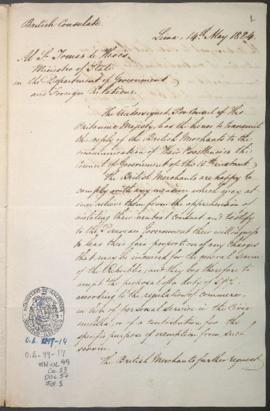 British Consulate
Lima, 14th May 1824.
Minister of State
in the Department of Government
and Foreign Relations.
The Undersigned, Proconsul of His
Britannic Majesty, has the honor to transmit
the reply of the British Merchants to the
communication of
Council of Government of the 12th Instant.
The British Merchants are happy to
comply with any measure which may at
once relieve them from the apprehension of
violating their neutral conduct and testify
to the Peruvian Government their willingness
to bear their fair proportion of any charges
that may be incurred for the general
of the Republic, and they beg therefore to
accept the proposal of a duty of
according to the regulations of commerce,
in lieu of personal service in the Civic
militia, or of a contribution for the
specific purpose of exemption from such
service.
The British Merchants further request
O.L. 99-14